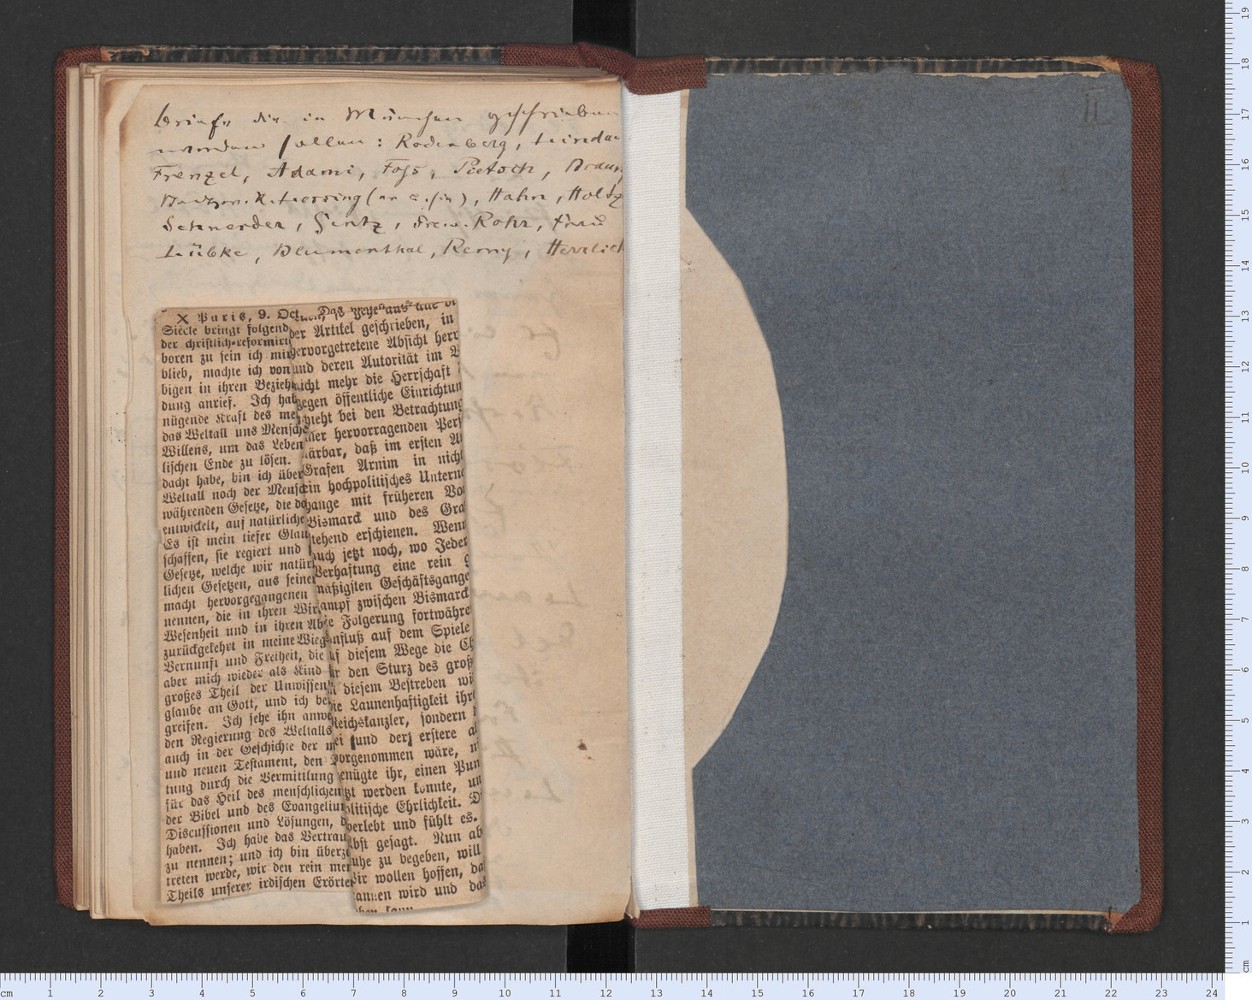 Briefe die in München geschrieben
werden sollen: Rodenberg, Lindau
Frenzel, Adami, Foss, Pietsch, Brau
Lessing (an u. für), Hahn, Holtz
Schneider, Gentz, Frau Rohr, Frau
Lübke, Blumenthal, Remy, Herrlich
X Paris, 9. Oct.
Siècle bringt folgend
der christlich-reformirt
boren zu sein ich mi
blieb, machte ich von
bigen in ihren Bezieh
dung anrief. Ich hab
nügende Kraft des me
das Weltall uns Mensch
Willens, um das Leben
lischen Ende zu lösen.
dacht habe, bin ich über
Weltall noch der Mensch
währenden Gesetze, die d
entwickelt, auf natürliche
Es ist mein tiefer Glau
schaffen, sie regiert und
Gesetze, welche wir natür
lichen Gesetzen, aus seine
macht hervorgegangenen
nennen, die in ihren Wir
Wesenheit und in ihren Ab
zurückgekehrt in meine Wieg
Vernunft und Freiheit, die
aber mich wieder als Kind
großes Theil der Unwissen
glaube an Gott, und ich be
greifen. Ich sehe ihn anwe
den Regierung des Weltalls
auch in der Geschichte der m
und neuen Testament, den
tung durch die Vermittlung
für das Heil des menschlichen
der Bibel und des Evangeliu
Discussionen und Lösungen, d
haben. Ich habe das Vertrau
zu nennen; und ich bin überz
treten werde, wir den rein me
Theils unserer irdischen Erörte
der Artikel geschrieben, in
hervorgetretene Absicht herr
und deren Autorität im
nicht mehr die Herrschaft
gegen öffentliche Einrichtun
zieht bei den Betrachtung
ller hervorragenden Pers
ärbar, daß im ersten A
Grafen Arnim in nich
ein hochpolitisches Untern
ange mit früheren Vo
Bismarck und des Gra
tehend erschienen. Wen
auch jetzt noch, wo Jeder
Verhaftung eine rein
mäßigsten Geschäftsgange
ampf zwischen Bismarck
e Folgerung fortwähre
nfluß auf dem Spiele
uf diesem Wege die C
r den Sturz des groß
diesem Bestreben wi
ie Launenhaftigkeit ihr
Reichskanzler, sondern
ei [und der] erstere a
vorgenommen wäre, n
enügte ihr, einen Pun
zt werden konnte, un
litische Ehrlichkeit. D
verlebt und fühlt es.
lbst gesagt. Nun ab
uhe zu begeben, will
Wir wollen hoffen, da
annen wird und da
ben kann
II